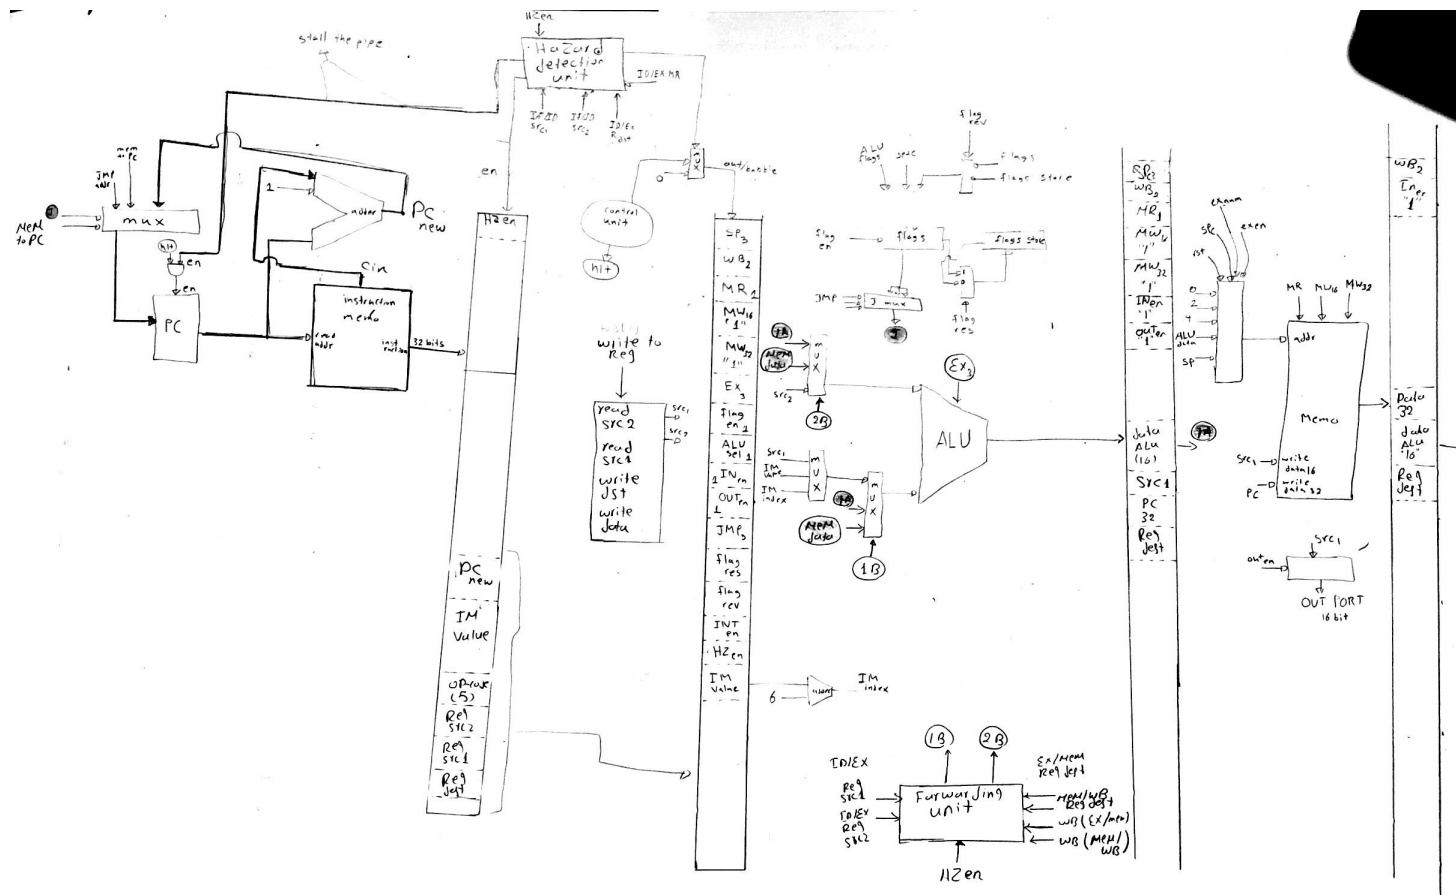 stall the pipe
HZen
Hazard
detection
unit
ID/EX MR
IF/ID
src1
IF/ID
src2
ID/Ex
Rdst
en
mem
to PC
JMP
addr
J
MEM
to PC
mux
1
adder
PC
new
hlt
en
en
PC
Cin
instruction
memo
read
addr
inst
ruction
32 bits
HZen
PC
new
IM
value
OP-code
(5)
Reg
src2
Reg
src1
Reg
dest
mux
0
out/bubble
control
unit
hlt
write to
Reg
read
src2
read
src1
write
dst
write
data
src1
src2
SP3
WB2
MR1
MW16
"1"
MW32
"1"
EX3
flag
en1
ALU
sel1
INen
1
OUTen
1
JMP3
flag
res
flag
rev
INT
en
HZen
IM
value
flag
rev
flags
flags store
ALU
flags
flag
en
flags
flags store
1
0
JMP
J mux
J
flag
res
MEM
data
src2
MUX
2B
src1
IM
value
IM
index
MUX
MEM
data
MUX
1B
EX3
ALU
6
adder
IM
index
1B
2B
ID/EX
Reg
src1
ID/EX
Reg
src2
Forwarding
unit
EX/MEM
Reg dest
MEM/WB
Reg dest
WB (EX/mem)
WB (MEM/
WB)
HZen
SP3
WB2
MR1
MW16
"1"
MW32
"1"
INen
"1"
outen
"1"
data
ALU
(16)
src1
PC
32
Reg
dest
rst
exen
0
2
4
ALU
data
SP
MR
MW16
MW32
addr
Memo
src1
write
data16
PC
write
data32
src1
outen
OUT PORT
16 bit
WB2
INen
"1"
Data
32
data
ALU
"16"
Reg
dest